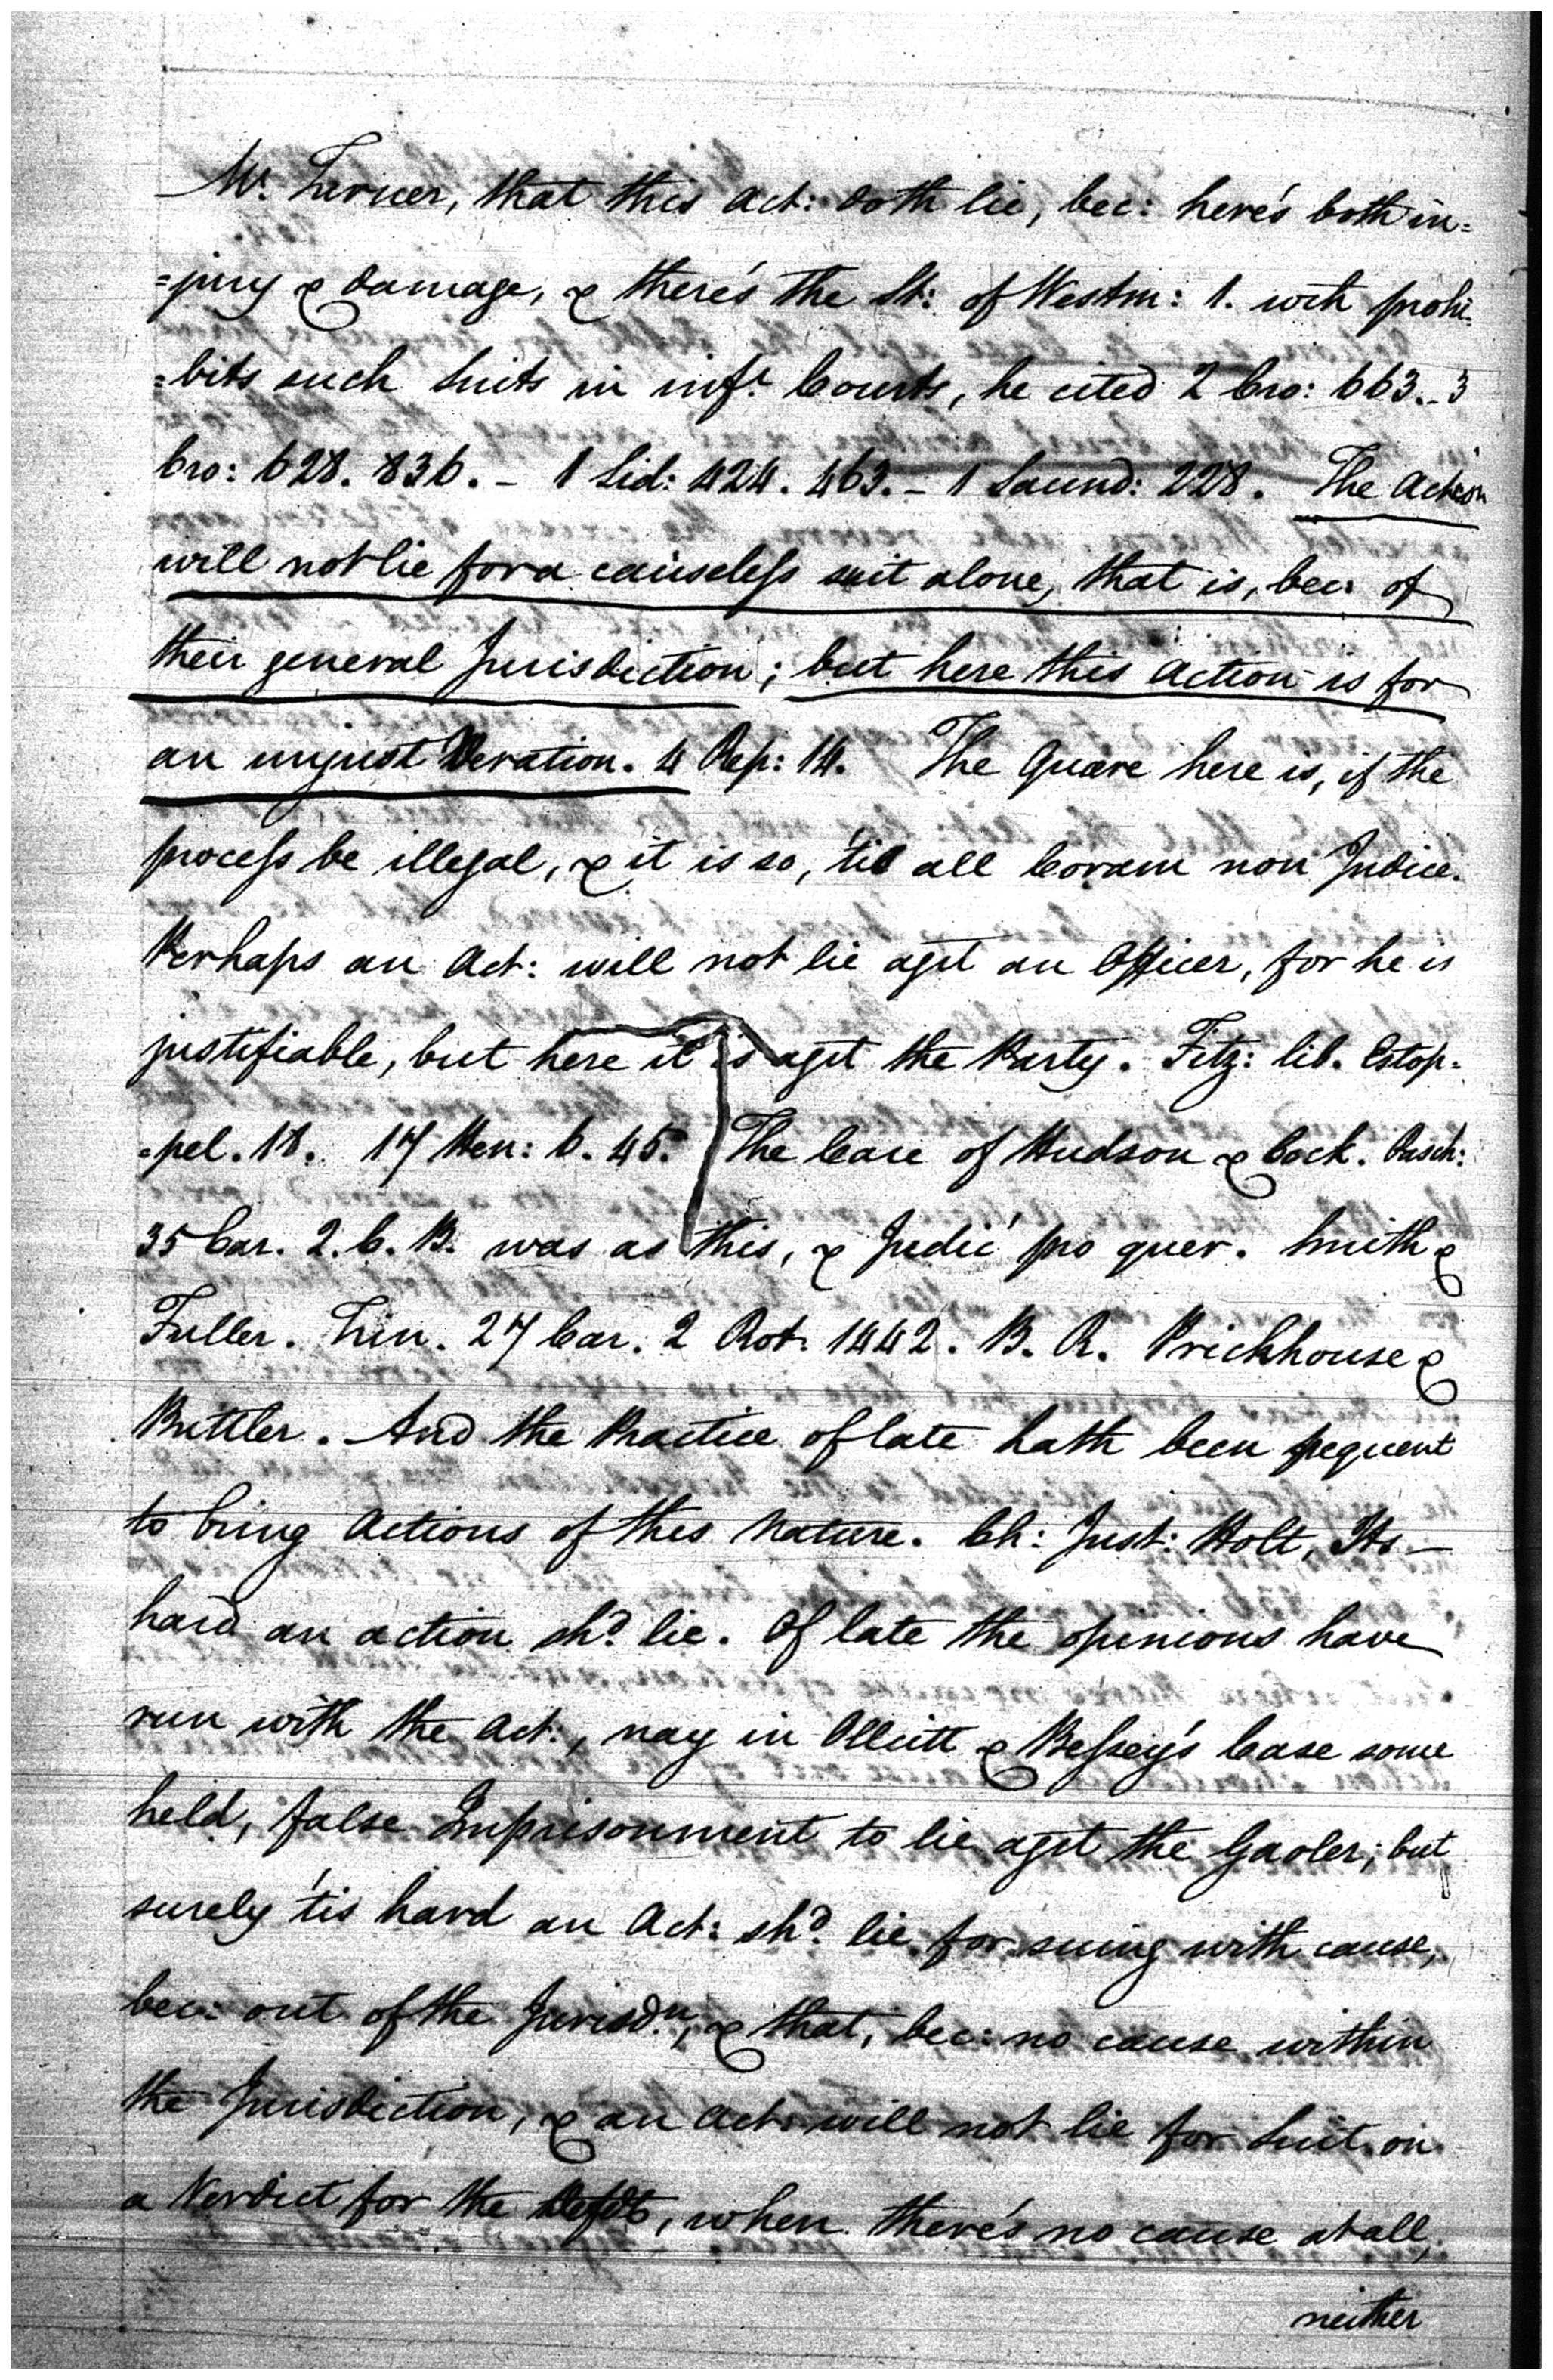 Mr. Turner, that this Act: doth lie, bec: here's both in=
=jury & damage, & there's the St: of Westm: 1. wch prohi:
=bits such Suits in infr. Courts, he cited 2 Cro: 663. - 3
Cro: 628. 836. - 1 Sid: 424. 463. - 1 Saund: 228. The Action
will not lie for a causeless suit alone, that is, bec: of
their general Jurisdiction; but here this Action is for
an unjust Vexation. 4 Rep: 14. The Quære here is, if the
process be illegal, & it is so, 'tis all Coram non Judice.
Perhaps an Act: will not lie agst an Officer, for he is
justifiable, but here it is agst the Party. Fitz: lib. Estop=
=pel. 18. 17 Hen: 6. 45. The Case of Hudson & Cock. Pasch:
35 Car. 2. C. B. was as this, & Judic' pro quer. Smith &
Fuller. Trin. 27 Car. 2 Rot. 1442. B. R. Prickhouse &
Buttler. And the Practice of late hath been frequent
to bring Actions of this Nature. Ch: Just: Holt, Its -
hard an action shd. lie. Of late the opinions have
run with the Act:, nay in Olliett & Bessey's Case some
held, false Imprisonment to lie agst the Gaoler; but
surely 'tis hard an Act: shd. lie for suing with cause,
bec: out of the Jurisdn., & that, bec: no cause within
the Jurisdiction, & an Act: will not lie for Suit on
a Verdict for the Defdt, when there's no cause at all,
neither